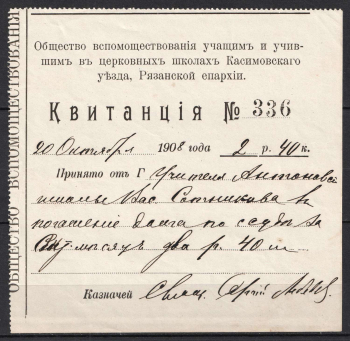 ОБЩЕСТВО ВСПОМОЩЕСТВОВАНІЯ
Общество вспомоществованія учащимъ и учив-
шимъ въ церковныхъ школахъ Касимовскаго
уѣзда, Рязанской епархіи.
Квитанція № 336
20 Октября 1908 года 2 р. 40 к.
Принято отъ Г Учителя Антоновск
школы Вас Сотникова въ
погашеніе долга по ссудѣ за
мѣсяцъ два р. 40 к
Казначей Свящ. Сергій